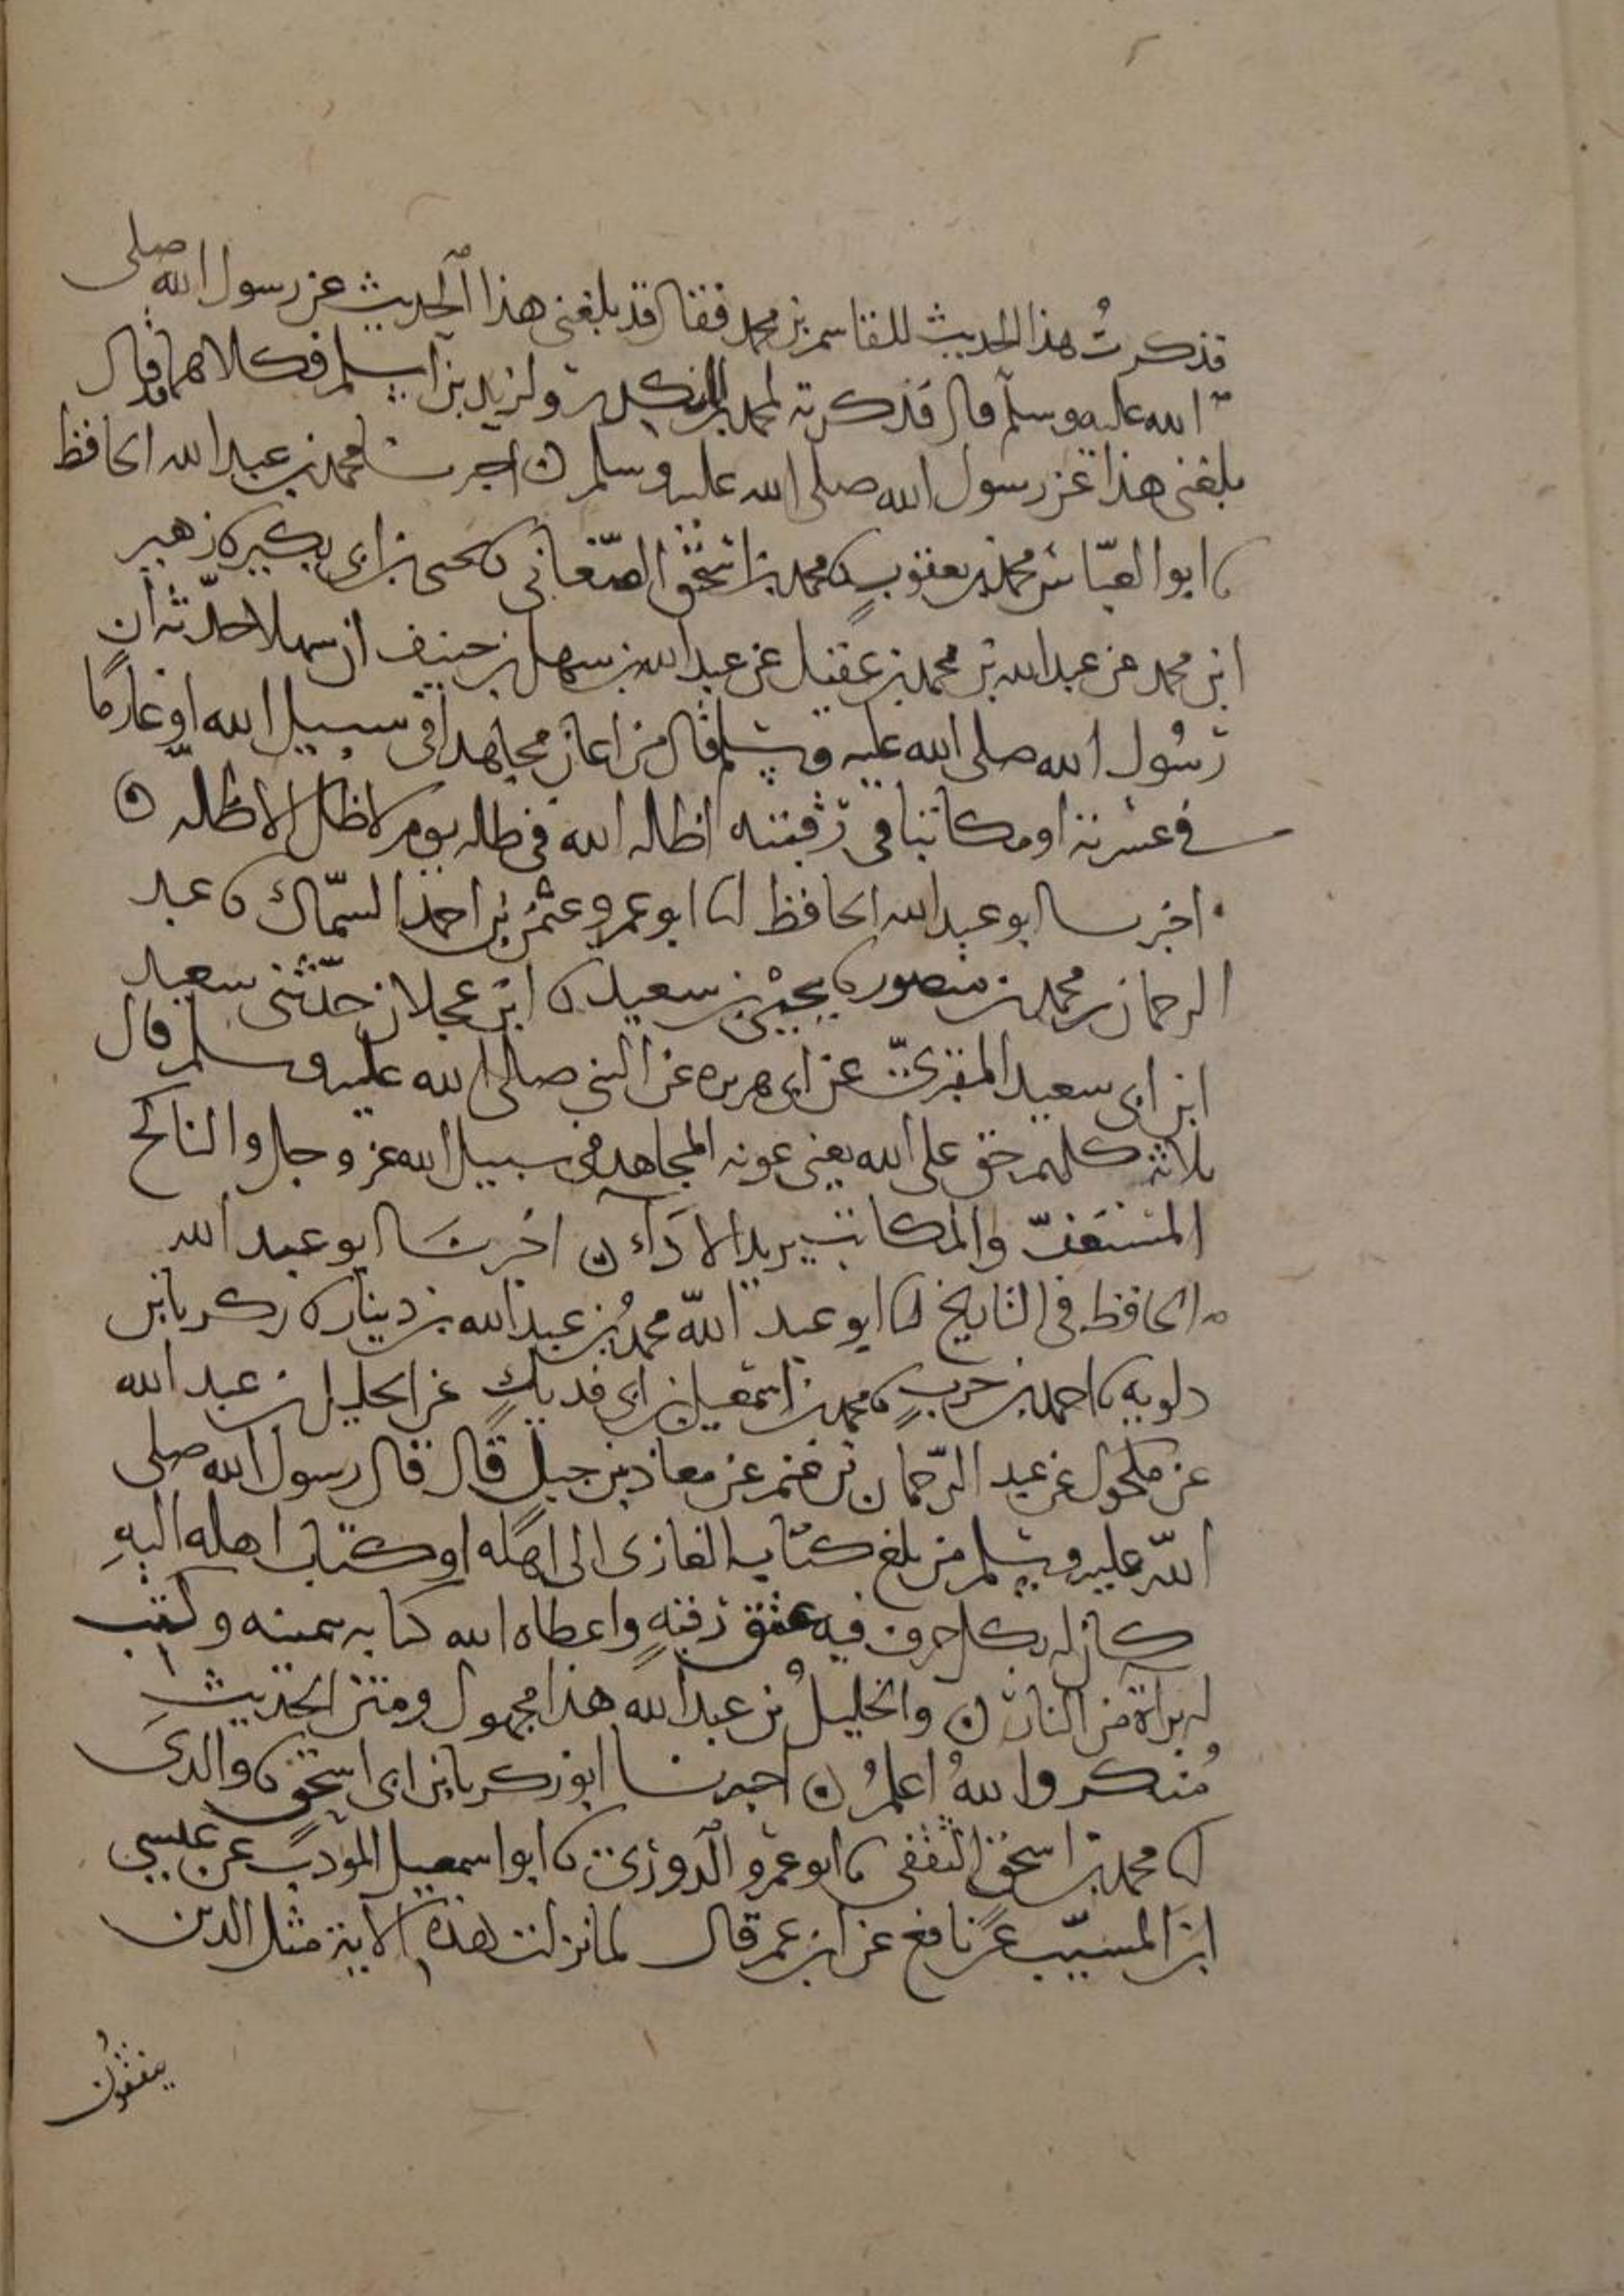 فذكرتُ هذا الحديث للقاسم بن محمد فقال قد بلغني هذا الحديث عن رسول الله صلى
الله عليه وسلم قال فذكرته لمحمد بن المنكدر ولزيد بن اسلم فكلاهما قد قال
بلغني هذا عن رسول الله صلى الله عليه وسلم ه اخبرنا محمد بن عبد الله الحافظ
نا ابو العبّاس محمد بن يعقوب نا محمد بن اسحق الصّغاني نا يحيى بن ابي بكير نا زهير
ابن محمد عن عبد الله بن محمد بن عقيل عن عبد الله بن سهل بن حنيف ان سهلا حدّثه أن
رسُول الله صلى الله عليه وسلم قال من اعان مجاهدا في سبيل الله او غارمًا
في عسرته او مكاتبا في رقبته اظله الله في ظله يوم لا ظل الا ظله ه
اخبرنا ابو عبد الله الحافظ انا ابو عمرو عثمن بن احمد السمّاك نا عبد
الرحمان بن محمد بن منصور نا يحيى بن سعيد نا ابن عجلان حدّثني سعيد
ابن ابي سعيد المقبري عن ابي هريره عن النبي صلى الله عليه وسلم قال
ثلاثة كلهم حق على الله يعني عونه المجاهد في سبيل الله عز وجل والناكح
المستعفّ والمكاتب يريد الاداء ه اخبرنا ابو عبد الله
الحافظ في التاريخ انا ابو عبد الله محمدُ بن عبد الله بن دينار نا زكريا بن
دلويه نا احمد بن حربٍ نا محمد بن اسمعيل بن ابي فديكٍ عن الخليل بن عبد الله
عن مكحول عن عبد الرّحمان بن غنم عن معاذ بن جبل قال قال رسول الله صلى
الله عليه وسلم من بلغ كتاب الغازي الى اهله او كتاب اهله اليهِ
كان له بكل حرف فيه عتق رقبةٍ واعطاه الله كتابه بيمينه وكتب
له براة من النار ه والخليلُ بن عبد الله هذا مجهول ومتن الحديث
مُنكر واللهُ اعلمُ ه اخبرنا ابو زكريا بن ابي اسحق نا والدي
انا محمد بن اسحق الثقفي نا ابو عمرو الدوري نا ابو اسمعيل المؤدب عن عيسى
ابن المسيّب عن نافع عن ابن عمر قال لما نزلت هذه الاية مثل الذين
ينفقُون